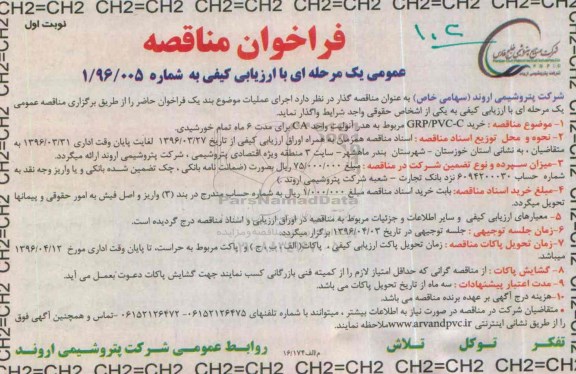 نوبت اول
فراخوان مناقصه
عمومی یک مرحله ای با ارزیابی کیفی به شماره ۱/۹۶/۰۰۵
شرکت پتروشیمی اروند (سهامی خاص) به عنوان مناقصه گذار در نظر دارد اجرای عملیات موضوع بند یک فراخوان حاضر را از طریق برگزاری مناقصه عمومی
یک مرحله ای با ارزیابی کیفی به یکی از اشخاص حقوقی واجد شرایط واگذار نماید.
۱- موضوع مناقصه : خرید GRP/PVC-C مربوط به هدر آنولیت واحد CA برای مدت ۶ ماه تمام خورشیدی.
۲- نحوه و محل توزیع اسناد مناقصه : اسناد مناقصه همزمان به همراه اوراق ارزیابی کیفی از تاریخ ۱۳۹۶/۰۳/۲۷ لغایت پایان وقت اداری ۱۳۹۶/۰۳/۳۱ به
متقاضیان ، به نشانی استان خوزستان - شهرستان بندر ماهشهر - سایت ۳ منطقه ویژه اقتصادی پتروشیمی ، شرکت پتروشیمی اروند ارائه میگردد.
۳- میزان سپرده و نوع تضمین شرکت در مناقصه : مبلغ ۷۵/۰۰۰/۰۰۰ ریال بصورت (ضمانت نامه بانکی ، چک تضمین شده بانکی و یا واریز وجه نقد به
شماره حساب ۶۰۹۴۲۰۰۰۳۰ نزد بانک تجارت - شعبه شرکت پتروشیمی اروند .)
۴- مبلغ خرید اسناد مناقصه: بابت خرید اسناد مناقصه مبلغ ۱/۰۰۰/۰۰۰ ریال به شماره حساب مندرج در بند (۳) واریز و اصل فیش به امور حقوقی و پیمانها
تحویل میگردد.
۵- معیارهای ارزیابی کیفی و سایر اطلاعات و جزئیات مربوط به مناقصه در اوراق ارزیابی و اسناد مناقصه درج گردیده است.
۶- زمان جلسه توجیهی : جلسه توجیهی در تاریخ ۱۳۹۶/۰۴/۰۳ برگزار میگردد.
۷- زمان تحویل پاکات مناقصه : زمان تحویل پاکت ارزیابی کیفی ، پاکات(الف، ب، ج) و پاکت مربوط به حراست، تا پایان وقت اداری مورخ ۱۳۹۶/۰۴/۱۲
میباشد.
۸- گشایش پاکات : از مناقصه گرانی که حداقل امتیاز لازم را از کمیته فنی بازرگانی کسب نمایند جهت گشایش پاکات دعوت بعمل می آید.
۹- مدت اعتبار پیشنهادات : سه ماه از تاریخ تحویل پاکات می باشد.
۱۰- هزینه درج آگهی بر عهده برنده مناقصه می باشد.
• متقاضیان شرکت در مناقصه در صورت نیاز به اطلاعات بیشتر ، میتوانند با شماره تلفنهای ۰۶۱۵۲۱۲۶۴۷۵ - ۰۶۱۵۲۱۲۶۴۷۲ تماس و همچنین آگهی فوق
را از طریق نشانی اینترنتی www.arvandpvc.ir ملاحظه نمایند.
تفکر توکل تلاش روابط عمومی شرکت پتروشیمی اروند
م الف ۱۶/۱۷۴